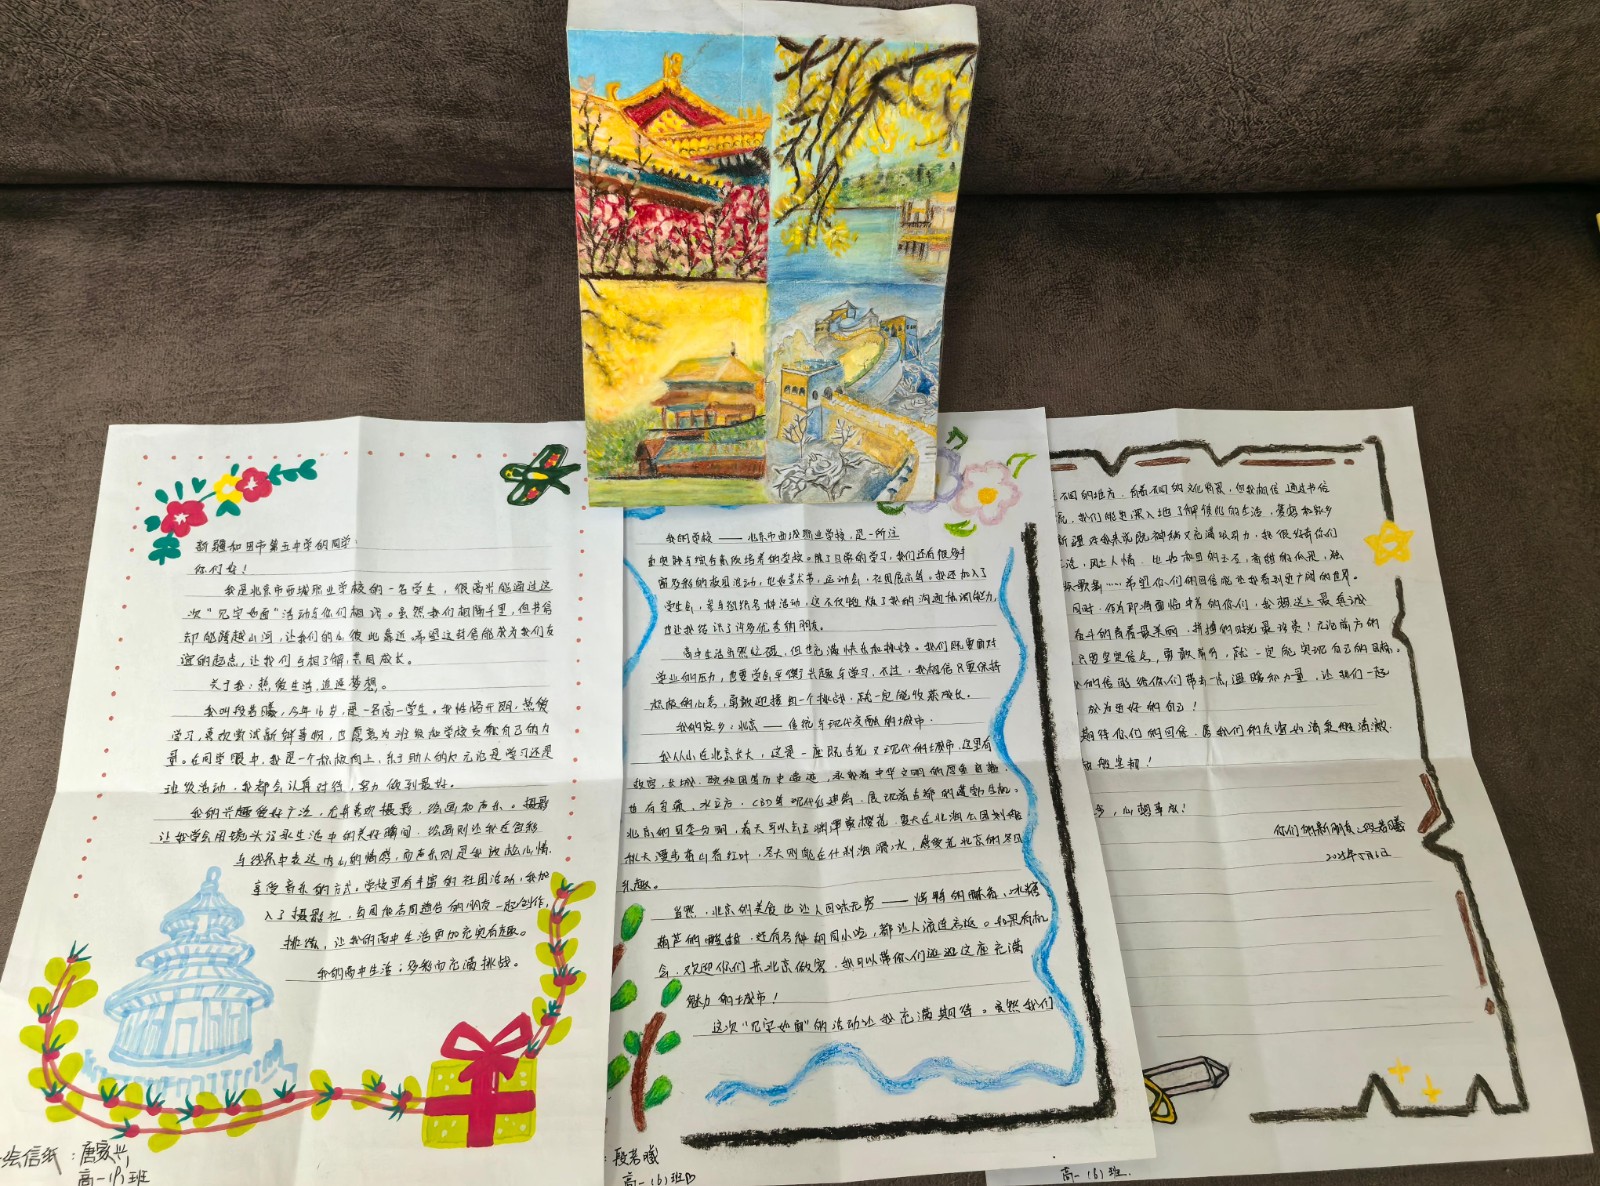 新疆和田市第五中学的同学:
你们好!
我是北京市西城职业学校的一名学生,很高兴能通过这
次“见字如面”活动与你们相识。虽然我们相隔千里,但书信
却能跨越山河,让我们的心彼此靠近。希望这封信能成为我们友
谊的起点,让我们互相了解,共同成长。
关于我:热爱生活,追逐梦想。
我叫段若曦,今年16岁,是一名高一学生。我性格开朗,热爱
学习,喜欢尝试新鲜事物,也愿意为班级和学校贡献自己的力
量。在同学眼中,我是一个积极向上,乐于助人的人无论是学习还是
班级活动,我都会认真对待,努力做到最好。
我的兴趣爱好广泛,尤其喜欢摄影,绘画和声乐。摄影
让我学会用镜头记录生活中的美好瞬间,绘画则让我在色彩
与线条中表达内心的情感,而声乐则是我放松心情,
享受音乐的方式。学校里有丰富的社团活动,我加
入了摄影社,每周和志同道合的朋友一起创作,
排练,让我的高中生活更加充实有趣。
我的高中生活:多彩而充满挑战。
绘信纸:唐家兴
高一(9)班
我的学校——北京市西城职业学校,是一所注
重实践与综合素质培养的学校。除了日常的学习,我们还有很多丰
富多彩的校园活动,也如艺术节,运动会,社团展示等。我还加入了
学生会,参与组织各种活动,这不仅锻炼了我的沟通协调能力,
也让我结识了许多优秀的朋友。
高中生活虽然忙碌,但也充满快乐和挑战。我们既要面对
学业的压力,也要学会平衡兴趣与学习,不过,我相信只要保持
积极的心态,勇敢迎接每一个挑战,就一定能收获成长。
我的家乡:北京——传统与现代交融的城市.
我从小在北京长大,这是一座既古老又现代的城市。这里有
故宫,长城,颐和园等历史遗迹,承载着中华文明的厚重自豪,
也有鸟巢,水立方,CBD等现代化建筑,展现着古都的蓬勃生机。
北京的四季分明,春天可以去玉渊潭赏樱花,夏天在北海公园划船
秋天漫步香山看红叶,冬天则能在什刹海滑冰,感受老北京的冬日
乐趣。
当然,北京的美食也让人回味无穷——烤鸭的酥香,冰糖
葫芦的酸甜,还有各种胡同小吃,都让人流连忘返。如果有机
会,欢迎你们来北京做客,我可以带你们逛逛这座充满
魅力的城市!
这次“见字如面”的活动让我充满期待。虽然我们
段若曦
高一(6)班
不同的地方,有着不同的文化背景,但我相信通过书信
流,我们能更深入地了解彼此的生活,梦想和家乡
新疆对我来说既神秘又充满吸引力,我很好奇你们
活,风土人情,也如和田的玉石,香甜的瓜果,独
歌舞……希望你们的回信能让我看到更广阔的世界。
同时,作为即将面临中考的你们,我想送上最真诚
奋斗的青春最美丽,拼搏的时光最珍贵!无论前方的
只要坚定信念,勇敢前行,就一定能实现自己的目标。
的信能给你们带去一点温暖和力量,让我们一起
成为更好的自己!
期待你们的回信,愿我们的友谊如清泉般清澈,
般坚韧!
,心想事成!
你们的新朋友:段若曦
2025年5月6日
高一(6)班.